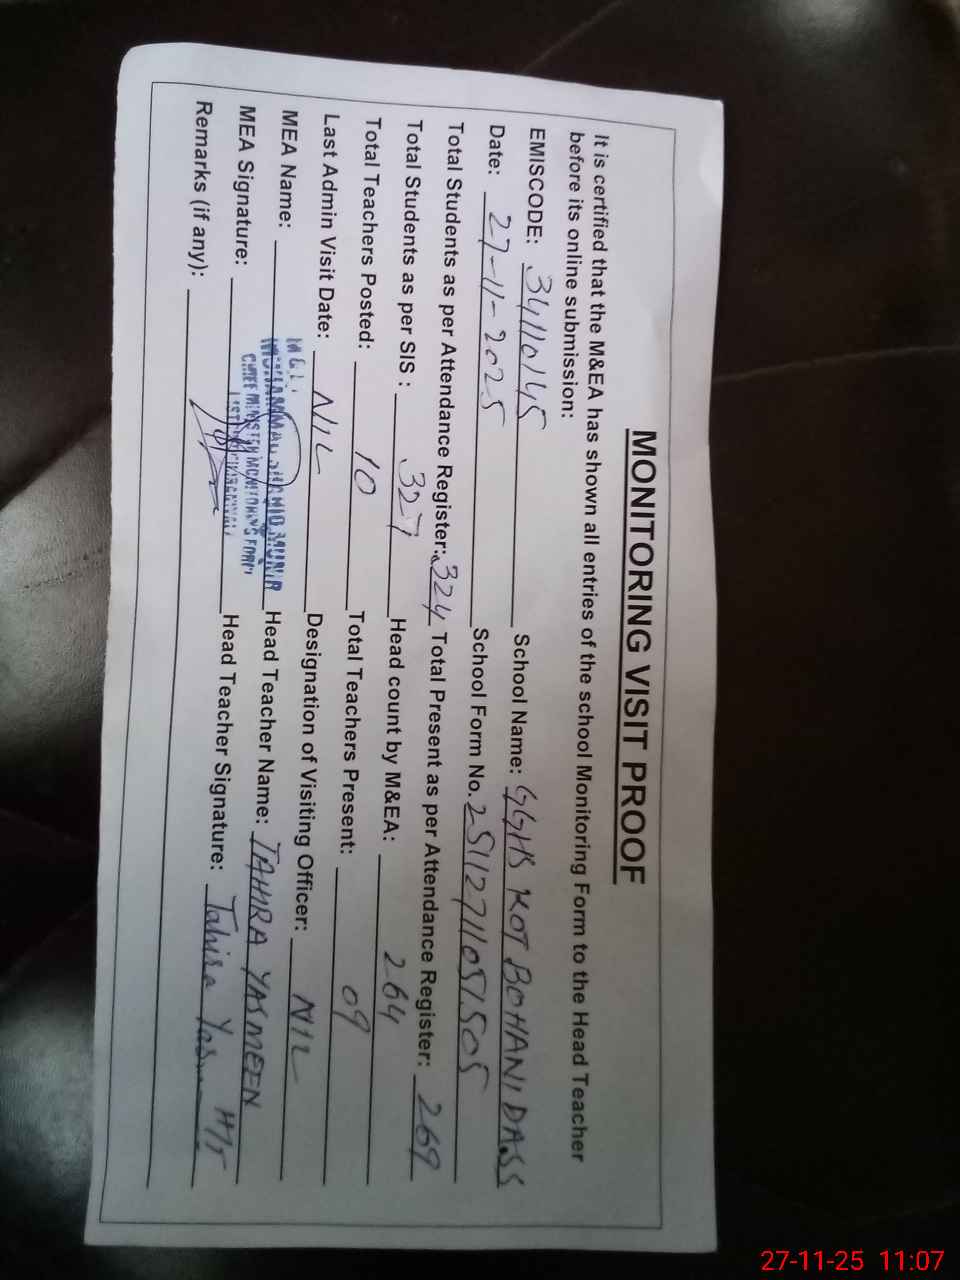 MONITORING VISIT PROOF
It is certified that the M&EA has shown all entries of the school Monitoring Form to the Head Teacher
before its online submission:
EMISCODE: 34110145 School Name: GGHS KOT BOHANI DASS
Date: 27-11-2025 School Form No. 25112711051505
Total Students as per Attendance Register: 324 Total Present as per Attendance Register: 269
Total Students as per SIS : 327 Head count by M&EA: 264
Total Teachers Posted: 10 Total Teachers Present: 09
Last Admin Visit Date: NIL Designation of Visiting Officer: NIL
MEA Name: MUHAMMAD MUNIR Head Teacher Name: TAHIRA YASMEEN
CHIEF MINISTER MONITORING FORCE
MEA Signature: Head Teacher Signature: Tahira
Remarks (if any):
27-11-25 11:07